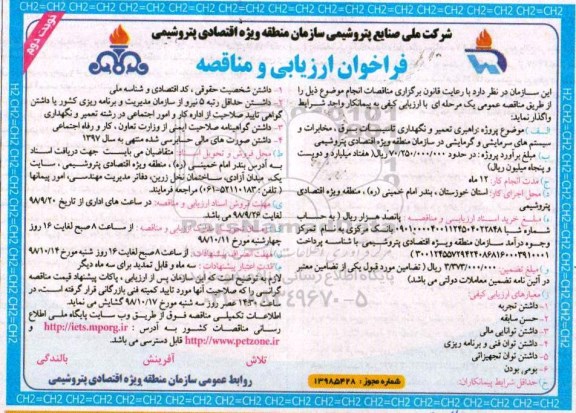 CH2=CH2
نوبت دوم
شرکت ملی صنایع پتروشیمی سازمان منطقه ویژه اقتصادی پتروشیمی
فراخوان ارزیابی و مناقصه
این سازمان در نظر دارد با رعایت قانون برگزاری مناقصات انجام موضوع ذیل را
از طریق مناقصه عمومی یک مرحله ای با ارزیابی کیفی به پیمانکار واجد شرایط
واگذار نماید:
الف) موضوع پروژه: راهبری تعمیر و نگهداری تاسیسات برق، مخابرات و
سیستم های سرمایشی و گرمایشی در سازمان منطقه ویژه اقتصادی پتروشیمی
ب) مبلغ برآورد پروژه: در حدود ۷۰/۲۵۰/۰۰۰/۰۰۰ ریال( هفتاد میلیارد و دویست
و پنجاه میلیون ریال)
ج) مدت انجام کار: ۱۲ ماه
ح) محل اجرای کار: استان خوزستان ، بندر امام خمینی (ره) ، منطقه ویژه اقتصادی
پتروشیمی
د) مبلغ خرید اسناد ارزیابی و مناقصه: پانصد هزار ریال ( به حساب
وجوه درآمد سازمان منطقه ویژه اقتصادی پتروشیمی با شناسه پرداخت
و) مبلغ تضمین: ۳/۳۷۳/۰۰۰/۰۰۰ ریال ( تضامین مورد قبول یکی از تضامین معتبر
در آئین نامه تضمین معاملات دولتی می باشد)
ز) معیارهای ارزیابی کیفی:
۱- داشتن تجربه
۲- حسن سابقه
۳- داشتن توانایی مالی
۴- داشتن توان فنی و برنامه ریزی
۵- داشتن توان تجهیزاتی
۶- بومی بودن
ح) حداقل شرایط پیمانکاران:
۱- داشتن شخصیت حقوقی ، کد اقتصادی و شناسه ملی
۲- داشتن حداقل رتبه ۵ نیرو از سازمان مدیریت و برنامه ریزی کشور یا داشتن
گواهی تایید صلاحیت از اداره کار و امور اجتماعی در رشته تعمیر و نگهداری
۳- داشتن گواهینامه صلاحیت ایمنی از وزارت تعاون ، کار و رفاه اجتماعی
۴- داشتن صورت های مالی حسابرسی شده منتهی به سال ۱۳۹۷
به آدرس بندر امام خمینی (ره) ، منطقه ویژه اقتصادی پتروشیمی ، سایت
یک، میدان آزادی، ساختمان نخل زرین، دفاتر مدیریت مهندسی، امور پیمانها
( تلفن : ۵۲۱۱۰۱۸۳-۰۶۱) مراجعه فرمایند.
ی) مهلت فروش اسناد ارزیابی و مناقصه: در ساعت های اداری از تاریخ ۹۸/۹/۲۰
لغایت ۹۸/۹/۲۶ می باشد.
از ساعت ۸ صبح لغایت ۱۶ روز
چهارشنبه مورخ ۹۸/۱۰/۱۱
از ساعت ۸ صبح لغایت ۱۶ روز شنبه مورخ ۹۸/۱۰/۱۴
سه ماه و قابل تمدید برای سه ماه دیگر
لازم به توضیح است که این سازمان پس از ارزیابی، پاکات پیشنهاد قیمت مناقصه
گرانی را که صلاحیت آنها مورد تایید کمیته فنی بازرگانی قرار گرفته است، در
ساعت ۱۴:۳۰ عصر روز سه شنبه مورخ ۹۸/۱۰/۱۷ گشایش می نماید
اطلاعات تکمیلی مناقصه فوق از طریق وب سایت پایگاه ملی اطلاع
رسانی مناقصات کشور به آدرس : http://iets.mporg.ir و
http://www.petzone.ir قابل دسترسی می باشد.
تلاش آفرینش بالندگی
روابط عمومی سازمان منطقه ویژه اقتصادی پتروشیمی
شماره مجوز : ۱۳۹۸۵۴۲۸